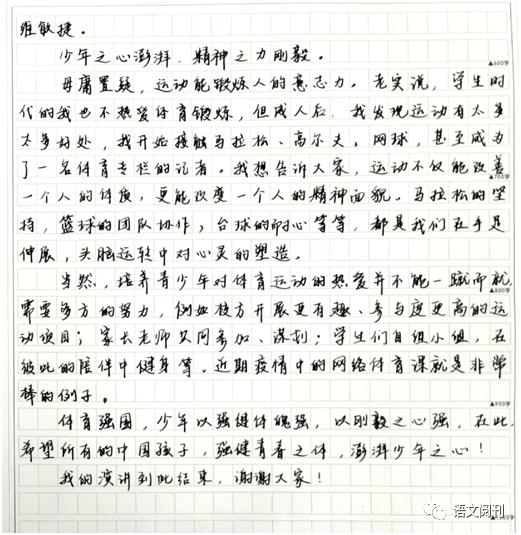 维敏捷。
少年之心澎湃，精神之力刚毅。
毋庸置疑，运动能锻炼人的意志力。老实说，学生时
▲600字
代的我也不热爱体育锻炼，但成人后，我发现运动有太多
太多好处，我开始接触马拉松、高尔夫、网球，甚至成为
了一名体育专栏的记者。我想告诉大家，运动不仅能改善
▲700字
一个人的体质，更能改变一个人的精神面貌。马拉松的坚
持，篮球的团队协作，台球的耐心等等，都是我们在手足
伸展，头脑运转中对心灵的塑造。
当然，培养青少年对体育运动的热爱并不能一蹴而就，
▲800字
需要多方的努力，例如校方开展更有趣、参与度更高的运
动项目；家长老师共同参加、谋划；学生们自组小组，在
彼此的陪伴中健身等。近期疫情中的网络体育课就是非常
棒的例子。
▲900字
体育强国，少年以强健体魄强，以刚毅之心强，在此，
希望所有的中国孩子，强健青春之体，澎湃少年之心！
我的演讲到此结束，谢谢大家！
语文阅刊